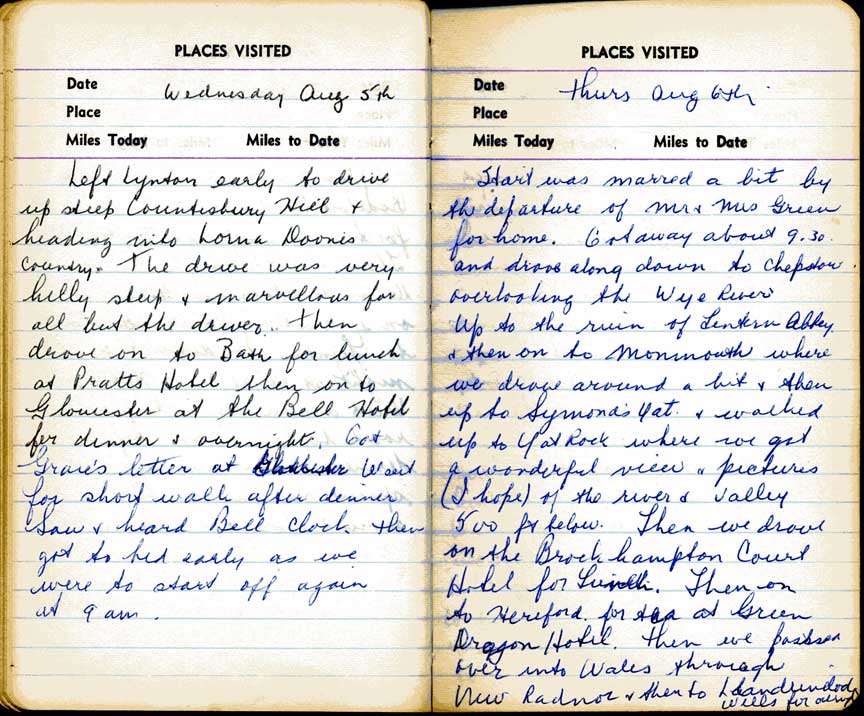 PLACES VISITED
Date Wednesday Aug 5th
Place
Miles Today Miles to Date
Left Lynton early to drive
up steep Countisbury Hill &
heading into Lorna Doonis
country. The drive was very
hilly steep & marvellous for
all but the driver. Then
drove on to Bath for lunch
at Pratts Hotel then on to
Gloucester at the Bell Hotel
for dinner & overnight. Got
Grace's letter at Went
for short walk after dinner
Saw & heard Bell Clock then
got to bed early as we
were to start off again
at 9 am.
PLACES VISITED
Date Thurs Aug 6th
Place
Miles Today Miles to Date
Start was marred a bit by
the departure of Mr & Mrs Green
for home. Got away about 9.30.
and drove along down to Chepstow
overlooking the Wye River
Up to the ruin of Tentern Abbey
& then on to Monmouth where
we drove around a bit & then
up to Symonds Yat. & walked
up to Yat Rock where we got
a wonderful view & pictures
(I hope) of the river & valley
500 ft below. Then we drove
on the Brockhampton Court
Hotel for Lunch. Then on
to Hereford for tea at Green
Dragon Hotel. Then we passed
over into Wales through
New Radnor & then to Llandrindod
Wells for